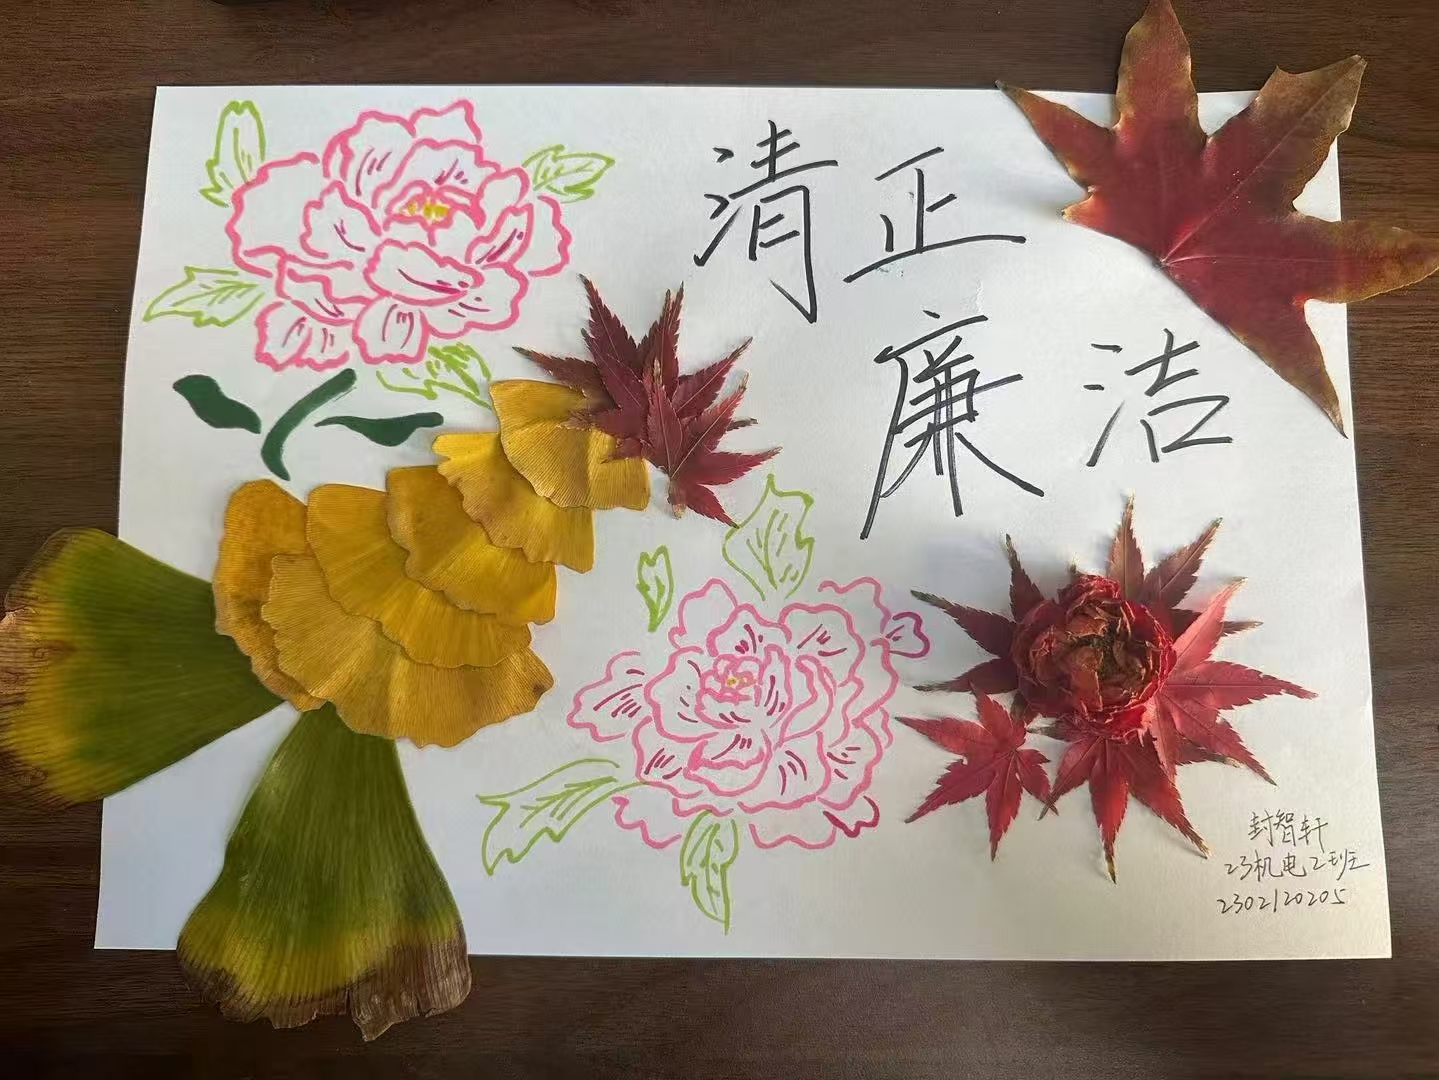 清正
廉洁
封智轩
23机电2班
2302120205